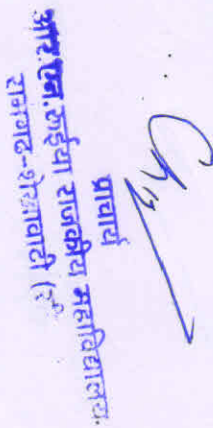 प्राचार्य
आर.एन.रूईया राजकीय महाविद्यालय,
रामगढ़-शेखावाटी